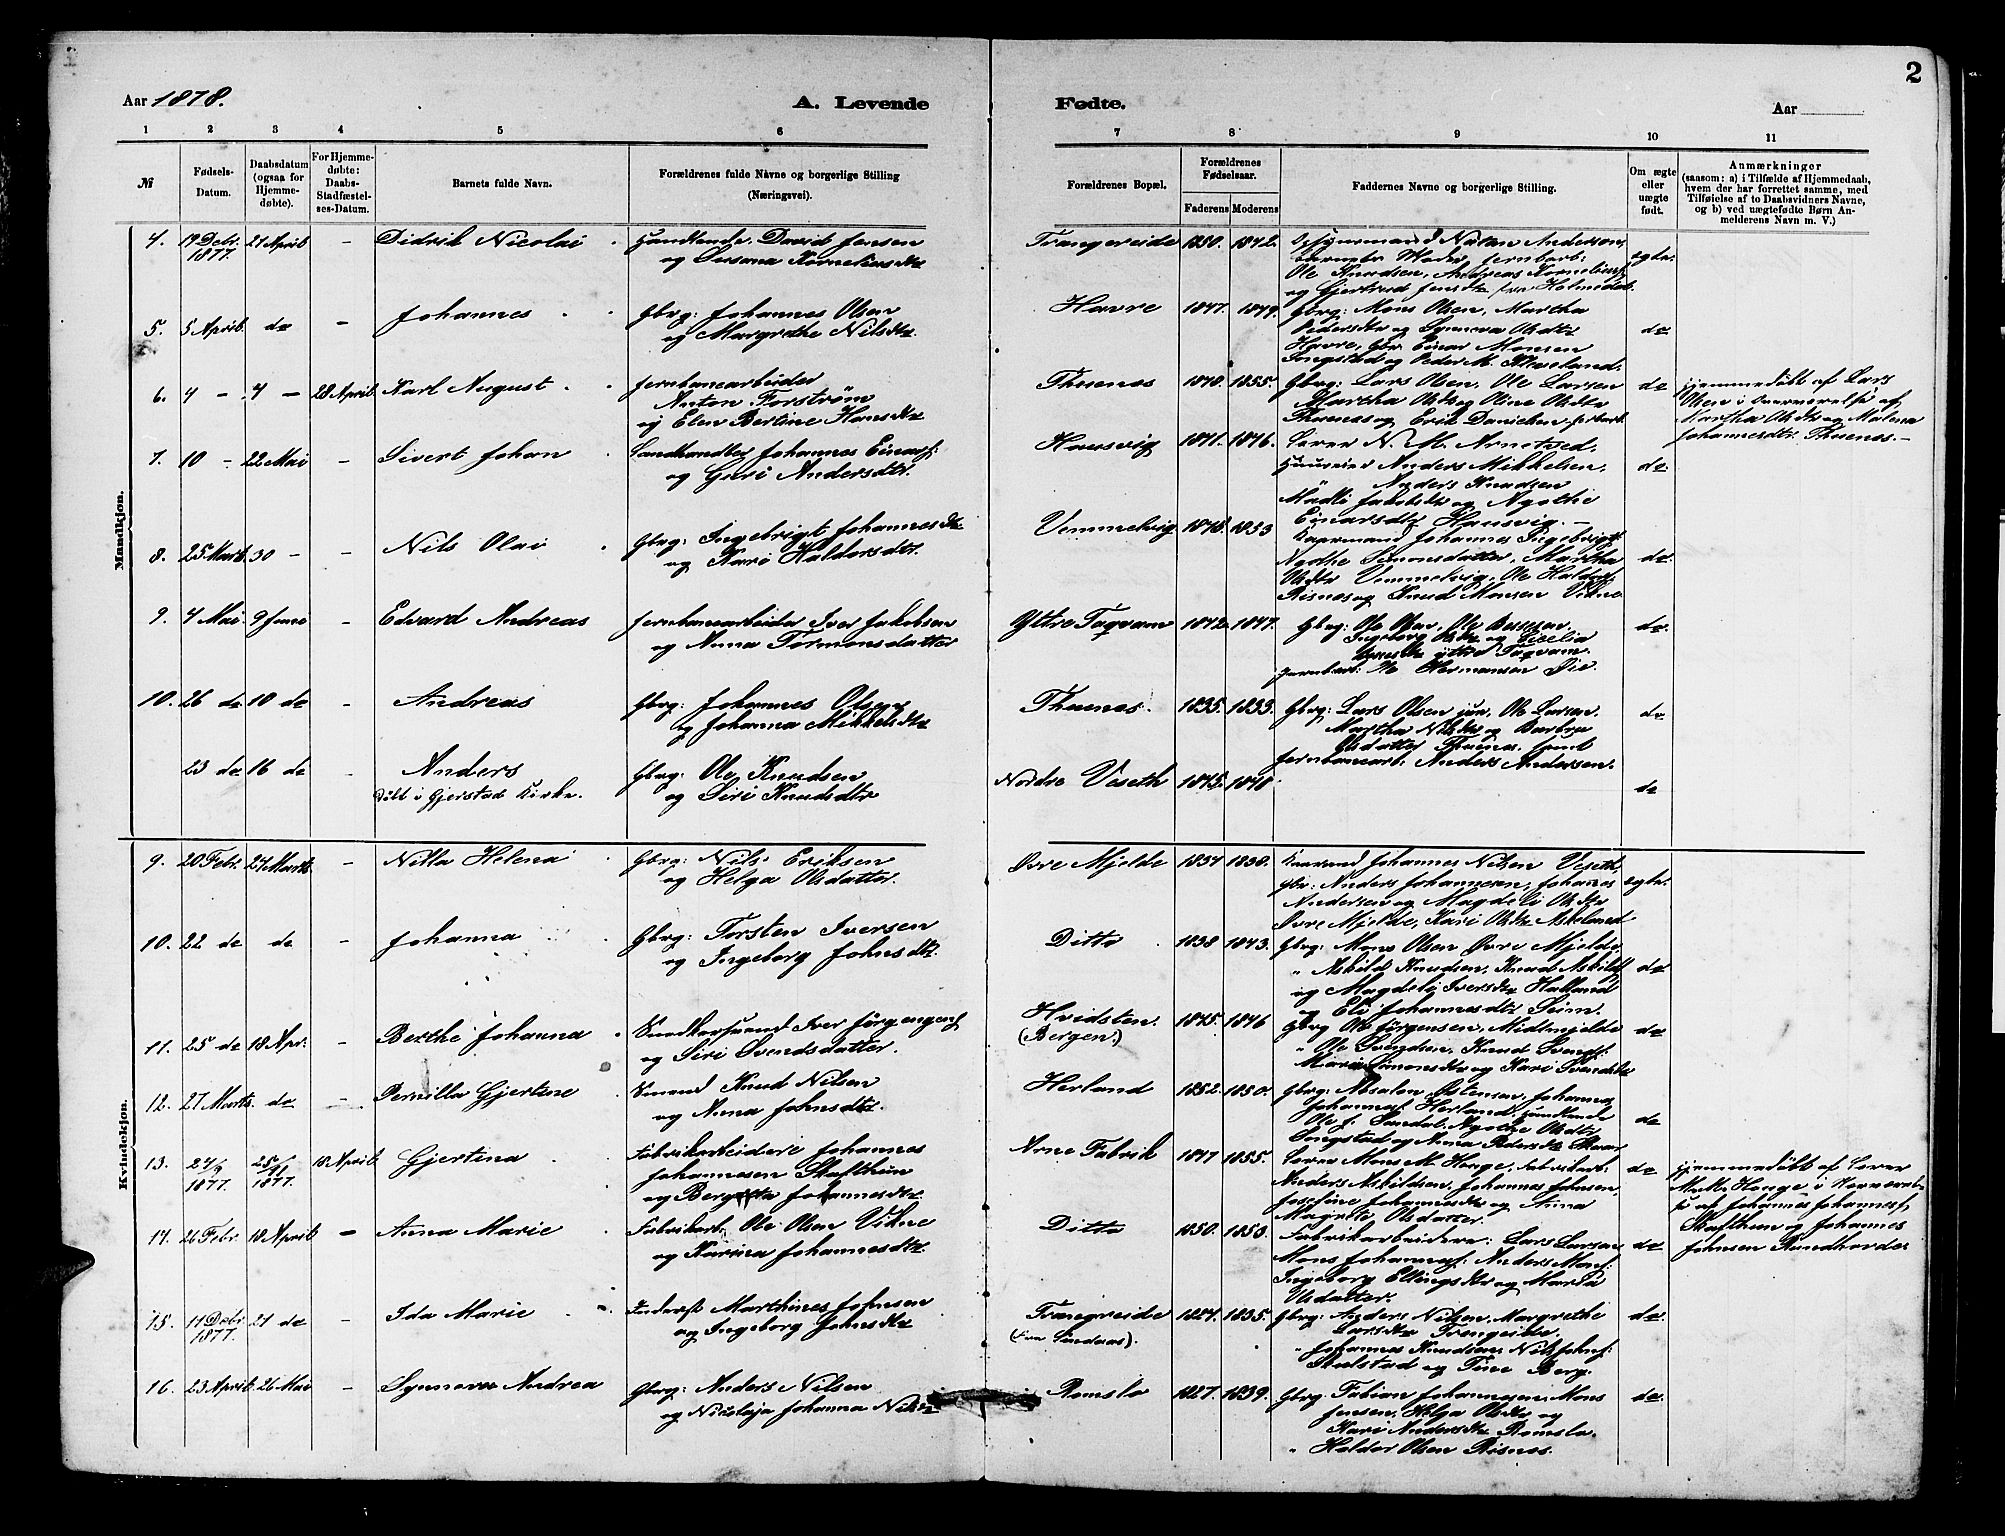 2
Aar 1878.
A. Levende
Fødte.
Aar
1 2 3 4 5 6 7 8 9 10 11
№
Fødsels-
Datum.
Daabsdatum
(ogsaa for
Hjemme-
døbte).
For Hjemme-
døbte:
Daabs-
Stadfæstel-
ses-Datum.
Barnets fulde Navn.
Forældrenes fulde Navne og borgerlige Stilling
(Næringsvei).
Forældrenes Bopæl.
Forældrenes
Fødselsaar.
Faderens Moderens
Faddernes Navne og borgerlige Stilling.
Om ægte
eller
uægte
født.
Anmærkninger
(saasom: a) i Tilfælde af Hjemmedaab,
hvem der har forrettet samme, med
Tilføielse af to Daabsvidners Navne,
og b) ved uægtefødte Børn An-
melderens Navn m. V.)
Mandkjøn.
4. 19 Debr. 1877. 21 April - Didrik Nicolai
Handlende David Jensen
og Susana Korneliusdtr
Trangereide 1850. 1842.
Natan Andersen,
Ole Knudsen, Andreas Korneliusf
og Gjertrud Jensdtr fra Holmedal.
ægte.
5. 5 April. do - Johannes
Gbrg: Johannes Olsen
og Margrethe Nilsdtr.
Havre 1847. 1849.
Gbrg: Mons Olsen, Martha
Pedersdtr og Synneva Olsdtr
Havre, Gbr. Einar Monsen
Songstad og Peder M.
de
6. 4 - 4 - 28 April. Karl August
Jernbanearbeider
Anton Forström
og Elen Bertine Hansdtr
Thuenes 1848. 1855.
Gbrg: Lars Olsen, Ole Larsen
Martha Olsdtr og Oline Olsdtr
Thuenes og Erik Danielsen
de
Hjemmedöbt af Lars
Olsen i Overværelse af
Martha Olsdtr og Malena
Johannesdtr Thuenes. -
7. 10 - 22 Mai - Sivert Johan
Landhandler Johannes Einarsf:
og Guri Andersdtr.
Hausvig 1841. 1846.
Lærer N. M. Arnetved,
Anders Mikkelsen,
Anders Knudsen
Jakobsdtr og Agothe
Einarsdtr Hausvig. -
de
8. 25 Mart. 30 - - Nils Olai
Gbrg: Ingebrigt Johannesdtr
og Kari Haldorsdtr.
Vemmelvig 1848. 1853
Johannes Ingebrigts
Agthe Simonsdatter, Martha
Olsdtr Vemmelvig, Ole Haldorf
Risnes og Knud Monsen Vikne
de
9. 4 Mai. 9 Juni - Edvard Andreas
Jernbanearbeider Iver Jakobsen
og Anna Tormonsdatter
Yttre Taqvam 1842. 1847.
Gbrg: Ole Olsen, Ole
Ingeborg Olsdtr og Cicelia
yttre Taqvam.
Jernbarb: Ole Hermansen Öie.
de
10. 26 de 10 de - Andreas
Gbrg: Johannes Olsen
og Johanna Mikkelsdtr
Thuenes. 1835. 1833.
Gbrg: Lars Olsen jun, Ole Larsen.
Martha Nilsdtr og Barbra
Olsdatter Thuenes. samt
Jernbanearb. Anders Andersen.
de
23 de 16 de - Anders
Döbt i Gjerstad Kirke.
Gbrg: Ole Knudsen
og Siri Knudsdtr
Nordre Veseth 1845. 1848
de
Kvindekjøn.
9. 20 Febr. 27 Marts. - Nilla Helena
Gbrg: Nils Eriksen
og Helga Olsdatter.
Övre Mjelde 1834 1830.
Johannes Nilsen Veseth,
Gbr: Anders Johannesen, Johanes
Andersen og Magdeli Olsdtr
Övre Mjelde, Kari Olsdtr Askeland
ægte.
10. 22 de de - Johanna
Gbrg: Torsten Iversen
og Ingeborg Johnsdtr.
Ditto 1838 1843.
Gbrg: Mons Olsen Övre Mjelde,
" Askild Knudsen, Knud Askildf
og Magdeli Iversdtr Halland
og Eli Johannesdtr Seim.
de
11. 25 de 18 Apr. - Berthe Johanna
Iver Jörgensens
og Siri Svendsdatter.
Hvidsten.
(Bergen.)
1845. 1846
Gbrg Ole Jörgensen, Midtmjelde
" Ole Svendsen, Knud Svendf:
Maria Simonsdtr og Kari Svendsdtr
de
12. 27 Marts. de - Pernilla Gjertine
Smaud Knud Nilsen
og Anna Johnsdtr.
Herland 1852. 1850.
Gbrg: Absalon Östensen, Johannes
Johannesf. Herland, Handlende
Ole J. Sandal, Agothe Olsdtr
Songstad og Anna Pedersdtr
de
13. 24/9 1877. 25/11 1877. 18 April. Gjertina
Fabrikarbeidere Johannes
Johannesen Skafthun
og Bergitta Johannesdtr
Arne Fabrik 1847 1855.
Lærer Mons M. Hauge, Fabrikarb.
Anders Askildsen, Johannes Johnsen,
Josefine Johannesdtr og Anna
Magrite Olsdatter.
de
Hjemmedöbt af Lærer
M. M. Hauge i Overværel-
se af Johannes Johannesf
Skafthun og Johannes
Johnsen Rundhovde
14. 26 Febr. 18 April - Anna Marie
Fabrikarb. Ole Olsen Vikne
og Karina Johannesdtr.
Ditto 1850. 1853.
Fabrikarbeidere: Lars Larsen,
Mons Johannesf: Anders Monsf:
Ingeborg Ellingsdtr og Marta
Olsdatter.
de
15. 11 Debr 1877. 21 de - Ida Marie
Inderst Marthines Johnsen
og Ingeborg Johnsdtr
Trangreide
(fra Lindaas).
1827. 1835.
Gbrg: Anders Nilsen, Margrethe
Larsdtr Trangreide.
" Johannes Knudsen, Nils Johnf:
og Tine Berg.
de.
16. 23 April. 26 Mai - Synnove Andrea
Gbrg: Anders Nilsen
og Nicolaja Johanna Nilsdtr
Romslo 1827. 1839.
Gbrg: Fabian Johannesen, Mons
Jensen, Helga Olsdtr og
Kari Andersdtr Romslo.
" Haldor Olsen Risnes.
de.